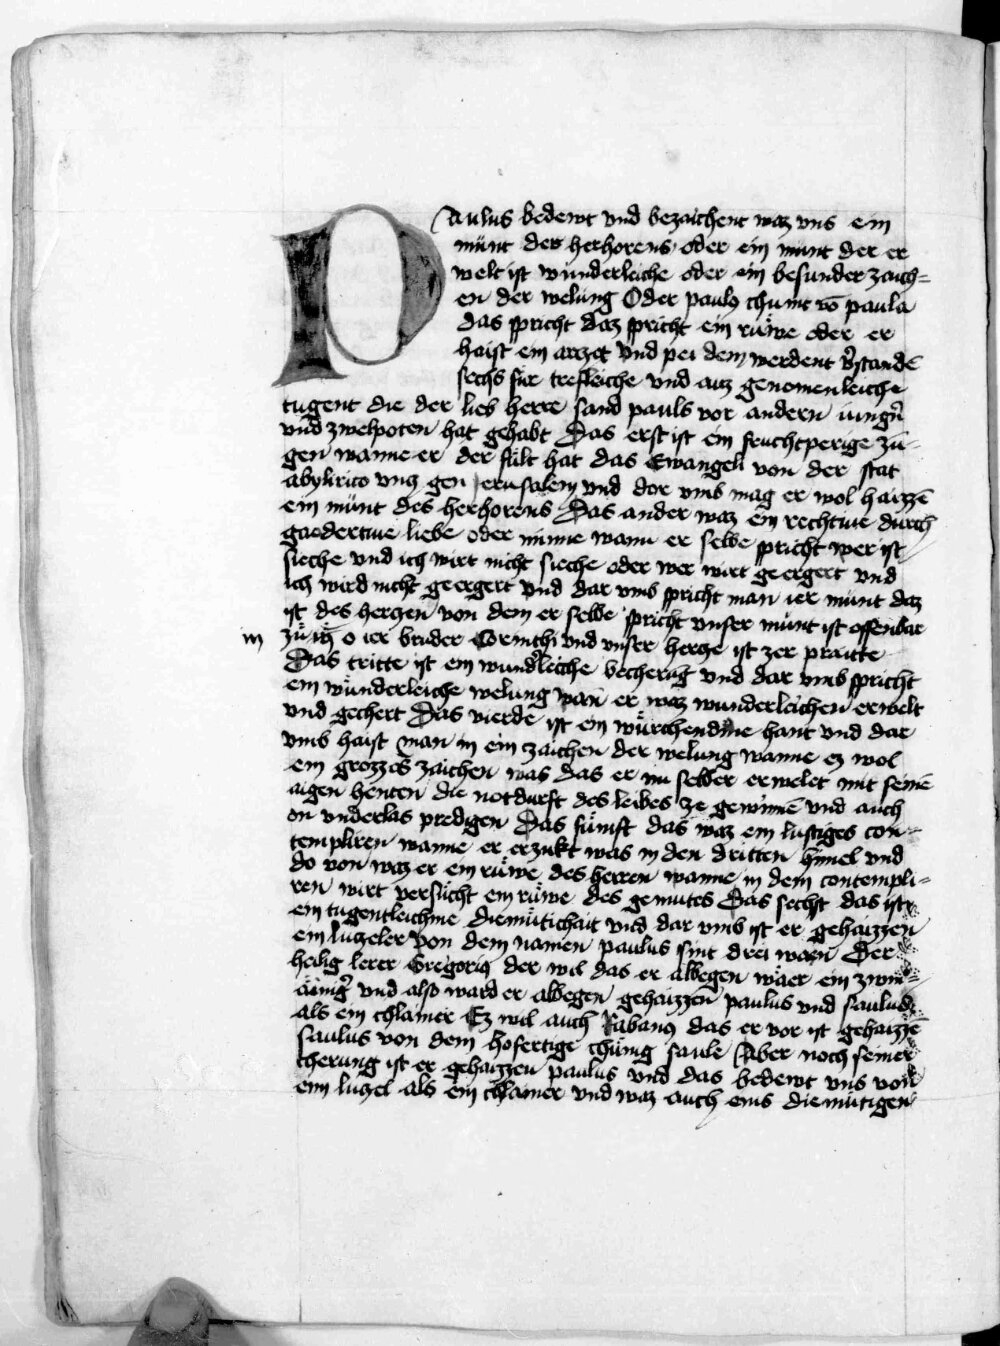 Paulus bedewt vnd bezaichent waz vns ein
münt der herhorens oder ein münt der er
welt ist wunderleiche oder ein besunder zaich=
en der welung Oder paulꝯ chumt vō paula
das spricht daz spricht ein rüwe oder er
haist ein arczet vnd pei dem werdent v̓standē
sechs für trefleiche vnd auz genomenleiche
tugent die der lieb herre sand pauls vor andern iungn̄
vnd zwelpoten hat gehabt Das erst ist ein fruchtperige zu=
gen wanne er der fült hat das Ewangeli von der stat
abylirico vncz gen Jerusalem vnd dor vmb mag er wol haizzē
ein münt des herhorens Das ander waz ein rechtiue durch
gaedertiue liebe oder minne wann er selbe spricht wer ist
sieche vnd ich wirt nicht sieche oder wer wirt geergert vnd
ich wird nicht geergert vnd dar vmb spricht man ier münt daz
ist des herczen von dem er selbe spricht vnser münt ist offenbar
zü o ier bruder Corinthi vnd vnser hercze ist zer praitte
Das tritte ist ein wund̓leiche becherūg vnd dar vmb spricht
ein wünderleiche welung wan er waz wunderleichen erwelt
vnd gechert Das vierde ist ein würchendine hant vnd dar
vmb haist man in ein zaichen der welung wanne ez wol
ein grozzes zaichen was das er im selber erwelet mit seinē
aigen henten die notdurft des leibes ze gewinnē vnd auch
on vnderlas predigen Das fümft das waz ein lustiges con=
templiren wanne er erzukt was in den dritten himel vnd
do von waz er ein rüwe des herren wanne in dem contempli=
ren wirt versücht ein rüwe des gemutes Das sechst das ist
ein tugentleichine diemütichait vnd dar vmb ist er gehaizzen
ein luczeler Von dem namen paulus sint drei wan Der
heilig lerer Gregoriꝯ der wil das er albegen wäer ein zwin=
äming̓ vnd also ward er albegen gehaizzen paulus vnd saulus
als ein chlainer Ez wil auch Rabanꝯ das er vor ist gehaizzē
saulus von dem hofertige chünig saule Aber noch seiner
cherung ist er gehaizzen paulus vnd das bedewt vns von
ein luczel als ein chlainer vnd waz auch eins diemütigen